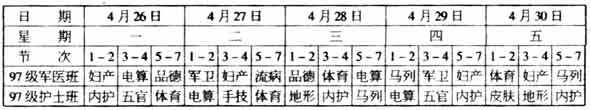 日 期 4月26日 4月27日 4月28日 4月29日 4月30日
星 期 一 二 三 四 五
节 次 1-2 3-4 5-7 1-2 3-4 5-7 1-2 3-4 5-7 1-2 3-4 5-7 1-2 3-4 5-7
97级军医班 妇产 电算 品德 军卫 妇产 流病 品德 体育 电算 马列 军卫 妇产 体育 妇产 马列
97级护士班 内护 五官 体育 电算 手技 体育 地形 内护 马列 电算 五官 内护 皮肤 地形 内护